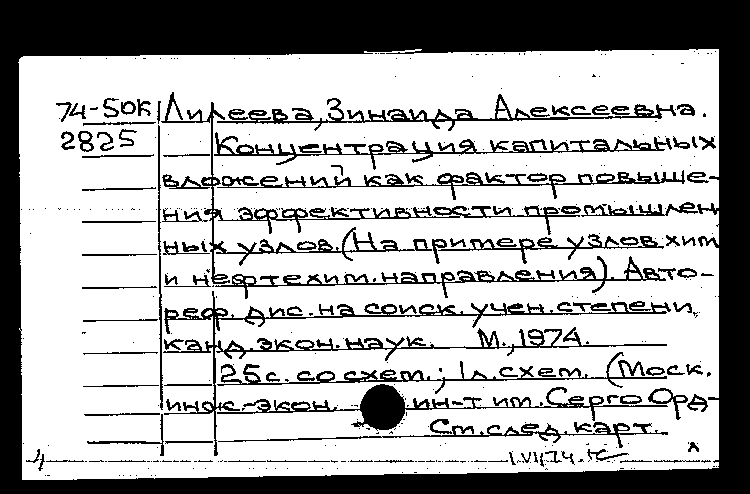 74-50К Лилеева, Зинаида Алексеевна.
2825 Концентрация капитальных
вложений как фактор повыше-
ния эффективности промышлен
ных узлов. (На примере узлов хим
и нефтехим. направления). Авто-
реф. дис. на соиск. учен. степени
канд. экон. наук. М., 1974.
25 с. со схем.; 1 л. схем. (Моск.
инж.-экон. ин-т им. Серго Орд-
См. след. карт.